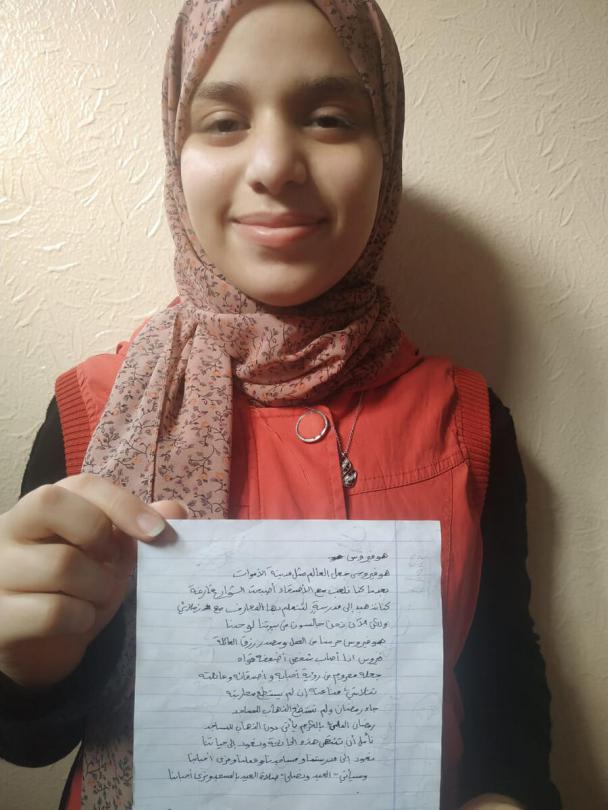 هو فيروس
هو فيروس جعل العالم مثل مدينة الأموات
بعدما كنا نلعب مع الأصدقاء أصبحت الشوارع فارغة
كنا نذهب إلى مدرسة لنتعلم بها المعارف مع
ولكن الآن نحن جالسون في بيتنا لوحدنا
هو فيروس حرمنا من العمل ومصدر رزق العائلة
فيروس اذا أصاب شخص أضعف قواه
جعله محروم من رؤية أحبابه وأصدقائه وعائلته
مناعته إن لم يستطع محاربته
جاء رمضان ولم نستطع الذهاب للمساجد
رمضان يأتي دون الذهاب للمساجد
نأمل أن تنتهي هذه الجائحة ونعود إلى حياتنا
نعود إلى مدرستنا و مساجدنا وعملنا ونرى أحبابنا
العيد ونصلي صلاة العيد بالمسجد ونرى أحبابنا